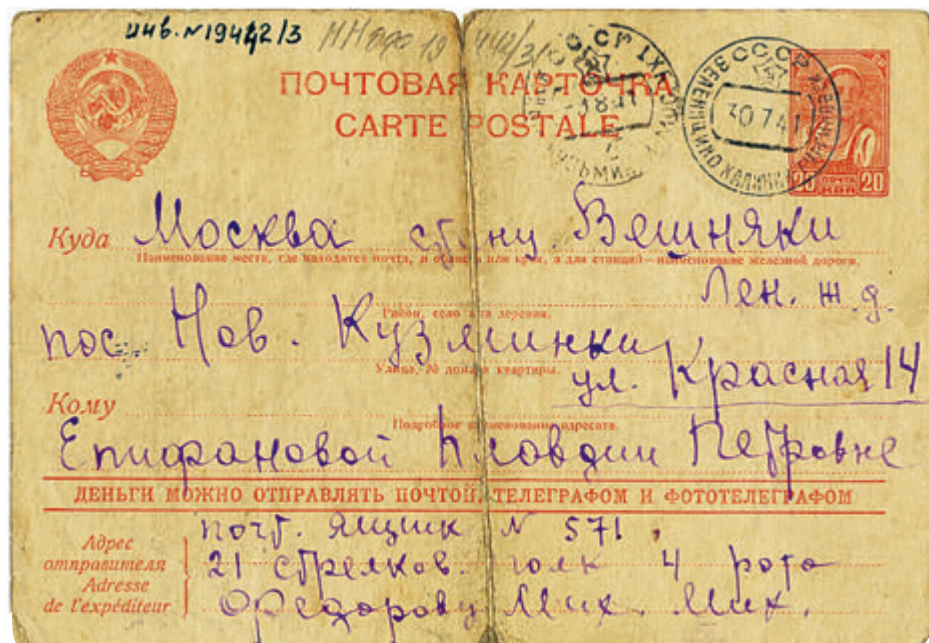 инв. №19442/3
ПОЧТОВАЯ КАРТОЧКА
CARTE POSTALE
СССР
30 7 41
20 ПОЧТА 20
Куда Москва станц. Вешняки
Наименование места, где находится почта, и область или край, а для станций — наименование железной дороги.
Лен. ж.д.
Район, село или деревня.
пос. Нов. Кузминки
Улица, № дома и квартиры.
ул. Красная 14
Кому
Подробное наименование адресата.
Епифановой Кловдии Петровне
ДЕНЬГИ МОЖНО ОТПРАВЛЯТЬ ПОЧТОЙ, ТЕЛЕГРАФОМ И ФОТОТЕЛЕГРАФОМ
Адрес отправителя
Adresse de l'expéditeur
почт. ящик № 571.
21 стрелков. полк 4 рота
Федорову Мих. Мих.